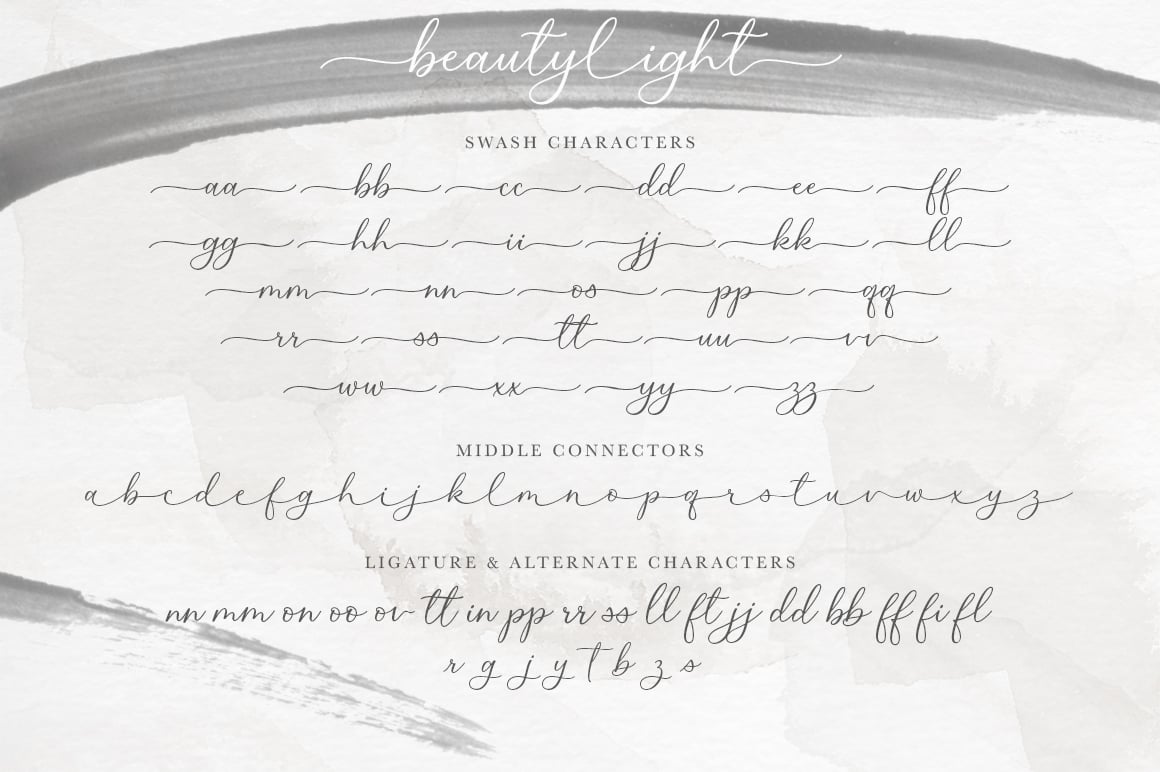 beautylight
SWASH CHARACTERS
aa bb cc dd ee ff
gg hh ii jj kk ll
mm nn os pp qq
rr ss tt uu vv
ww xx yy zz
MIDDLE CONNECTORS
abcdefghijklmnopqrstuvwxyz
LIGATURE & ALTERNATE CHARACTERS
nn mm on oo ov tt in pp rr ss ll ft jj dd bb ff fi fl
r g j y t b z s